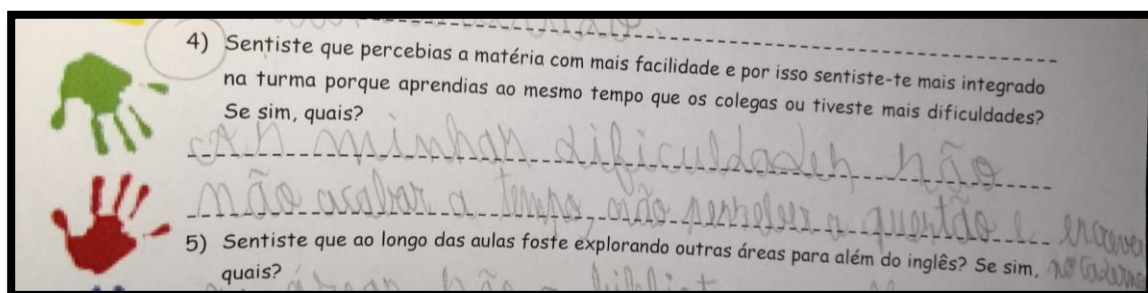 4) Sentiste que percebias a matéria com mais facilidade e por isso sentiste-te mais integrado
na turma porque aprendias ao mesmo tempo que os colegas ou tiveste mais dificuldades?
Se sim, quais?
minhas dificuldades não
não acabar a tempo, não perheber a questão e escrever
no caderno
5) Sentiste que ao longo das aulas foste explorando outras áreas para além do inglês? Se sim,
quais?